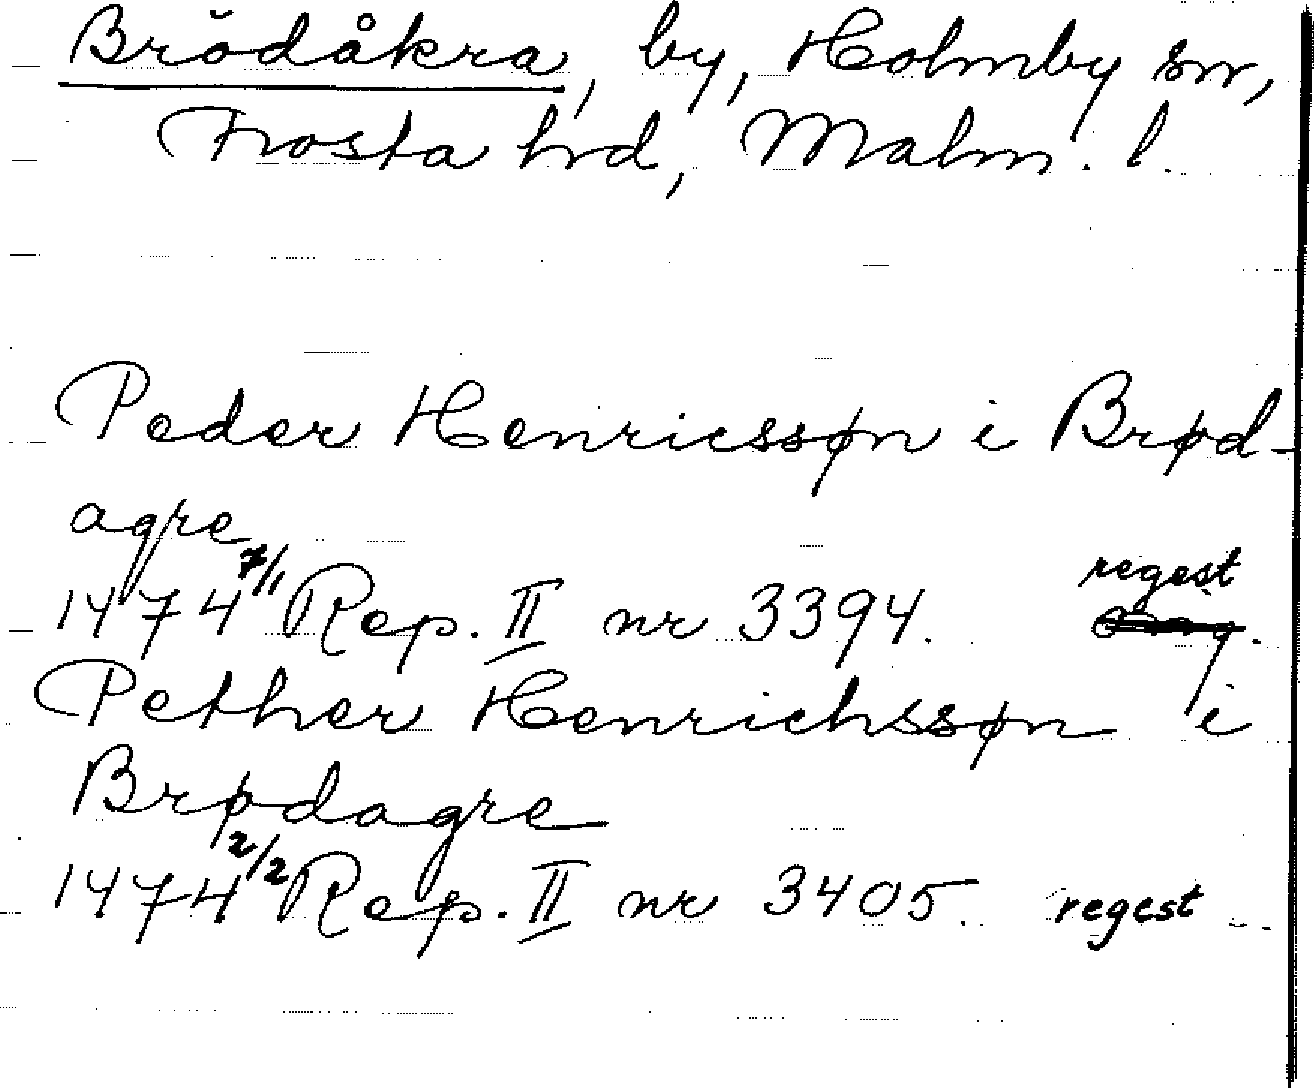 Brödåkra, by, Holmby sn,
Frosta hrd, Malm. l.
Peder Henricssøn i Brød-
agre
1474 7/1 Rep. II nr 3394. regest
Pether Henrichssøn i
Brødagre
1474 2/2 Rep. II nr 3405. regest